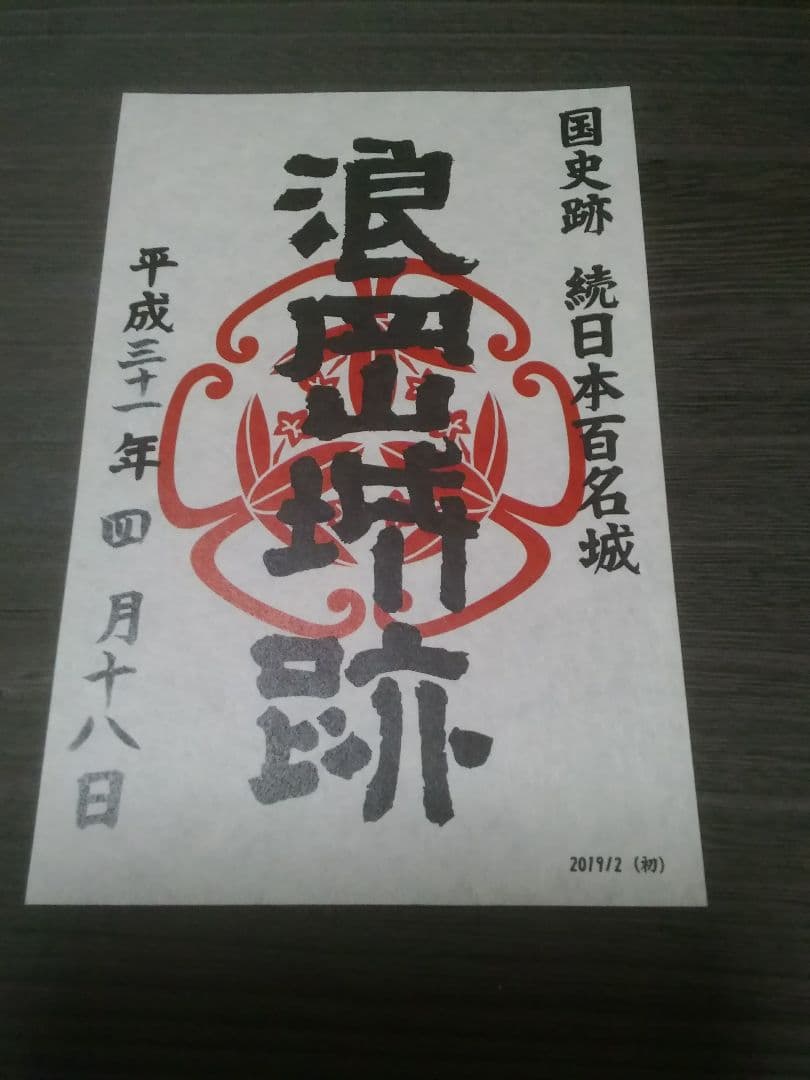 国史跡 続日本百名城
浪岡城跡
平成三十一年 四 月十八日
2019/2 (初)